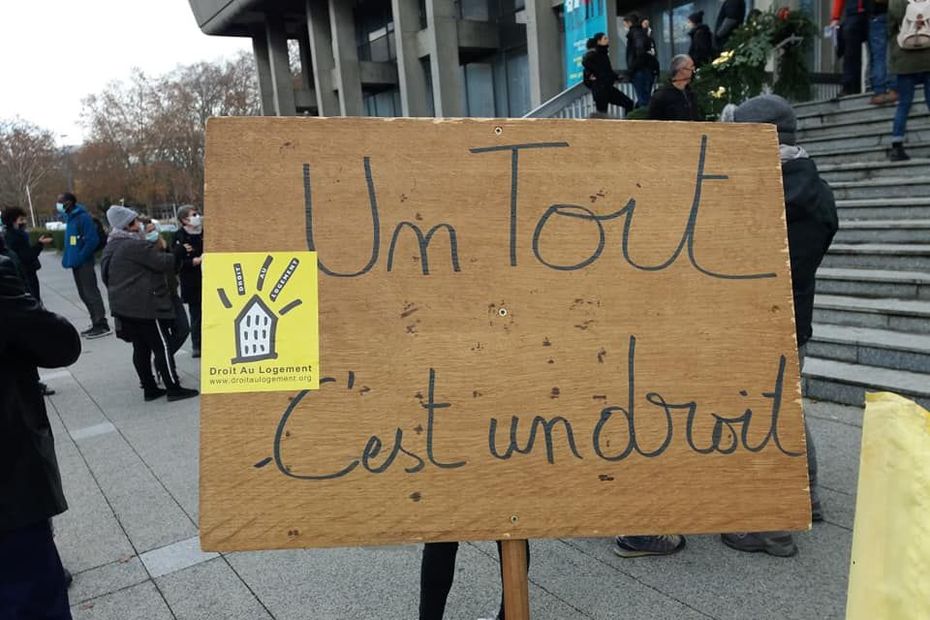 Un Toit
DROIT AU LOGEMENT
Droit Au Logement
www.droitaulogement.org
C'est un droit